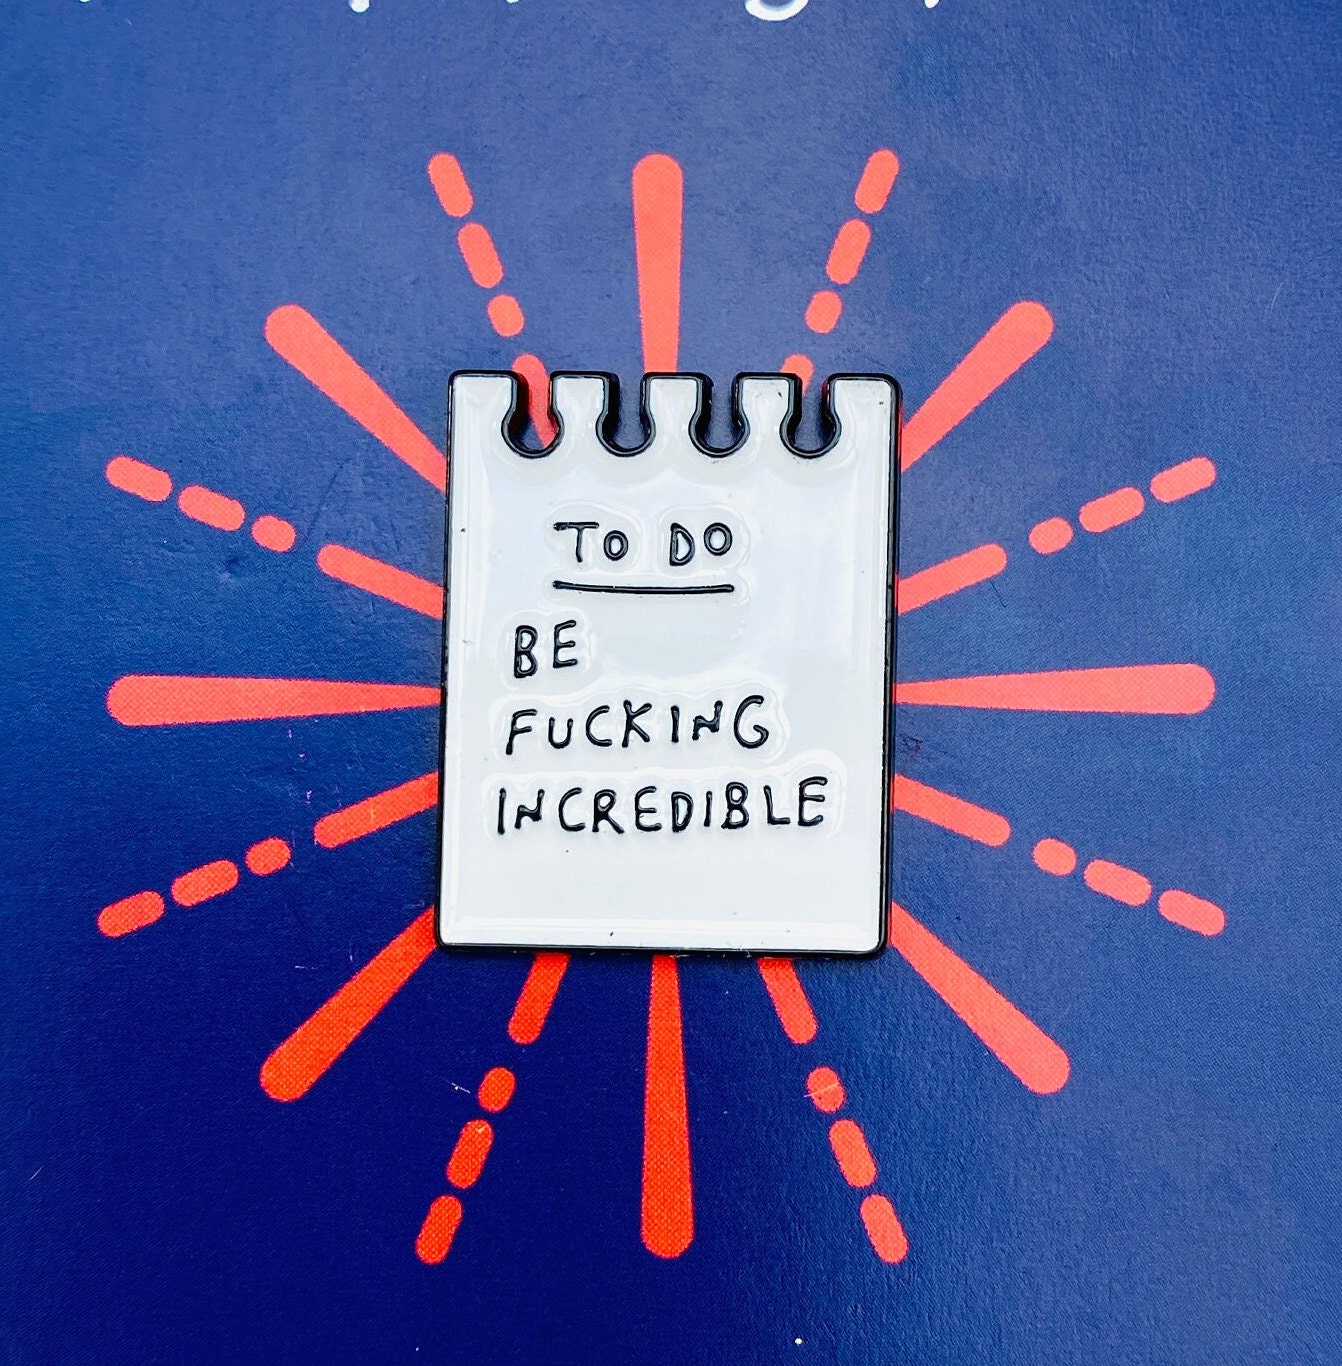 TO DO
BE
FUCKING
INCREDIBLE